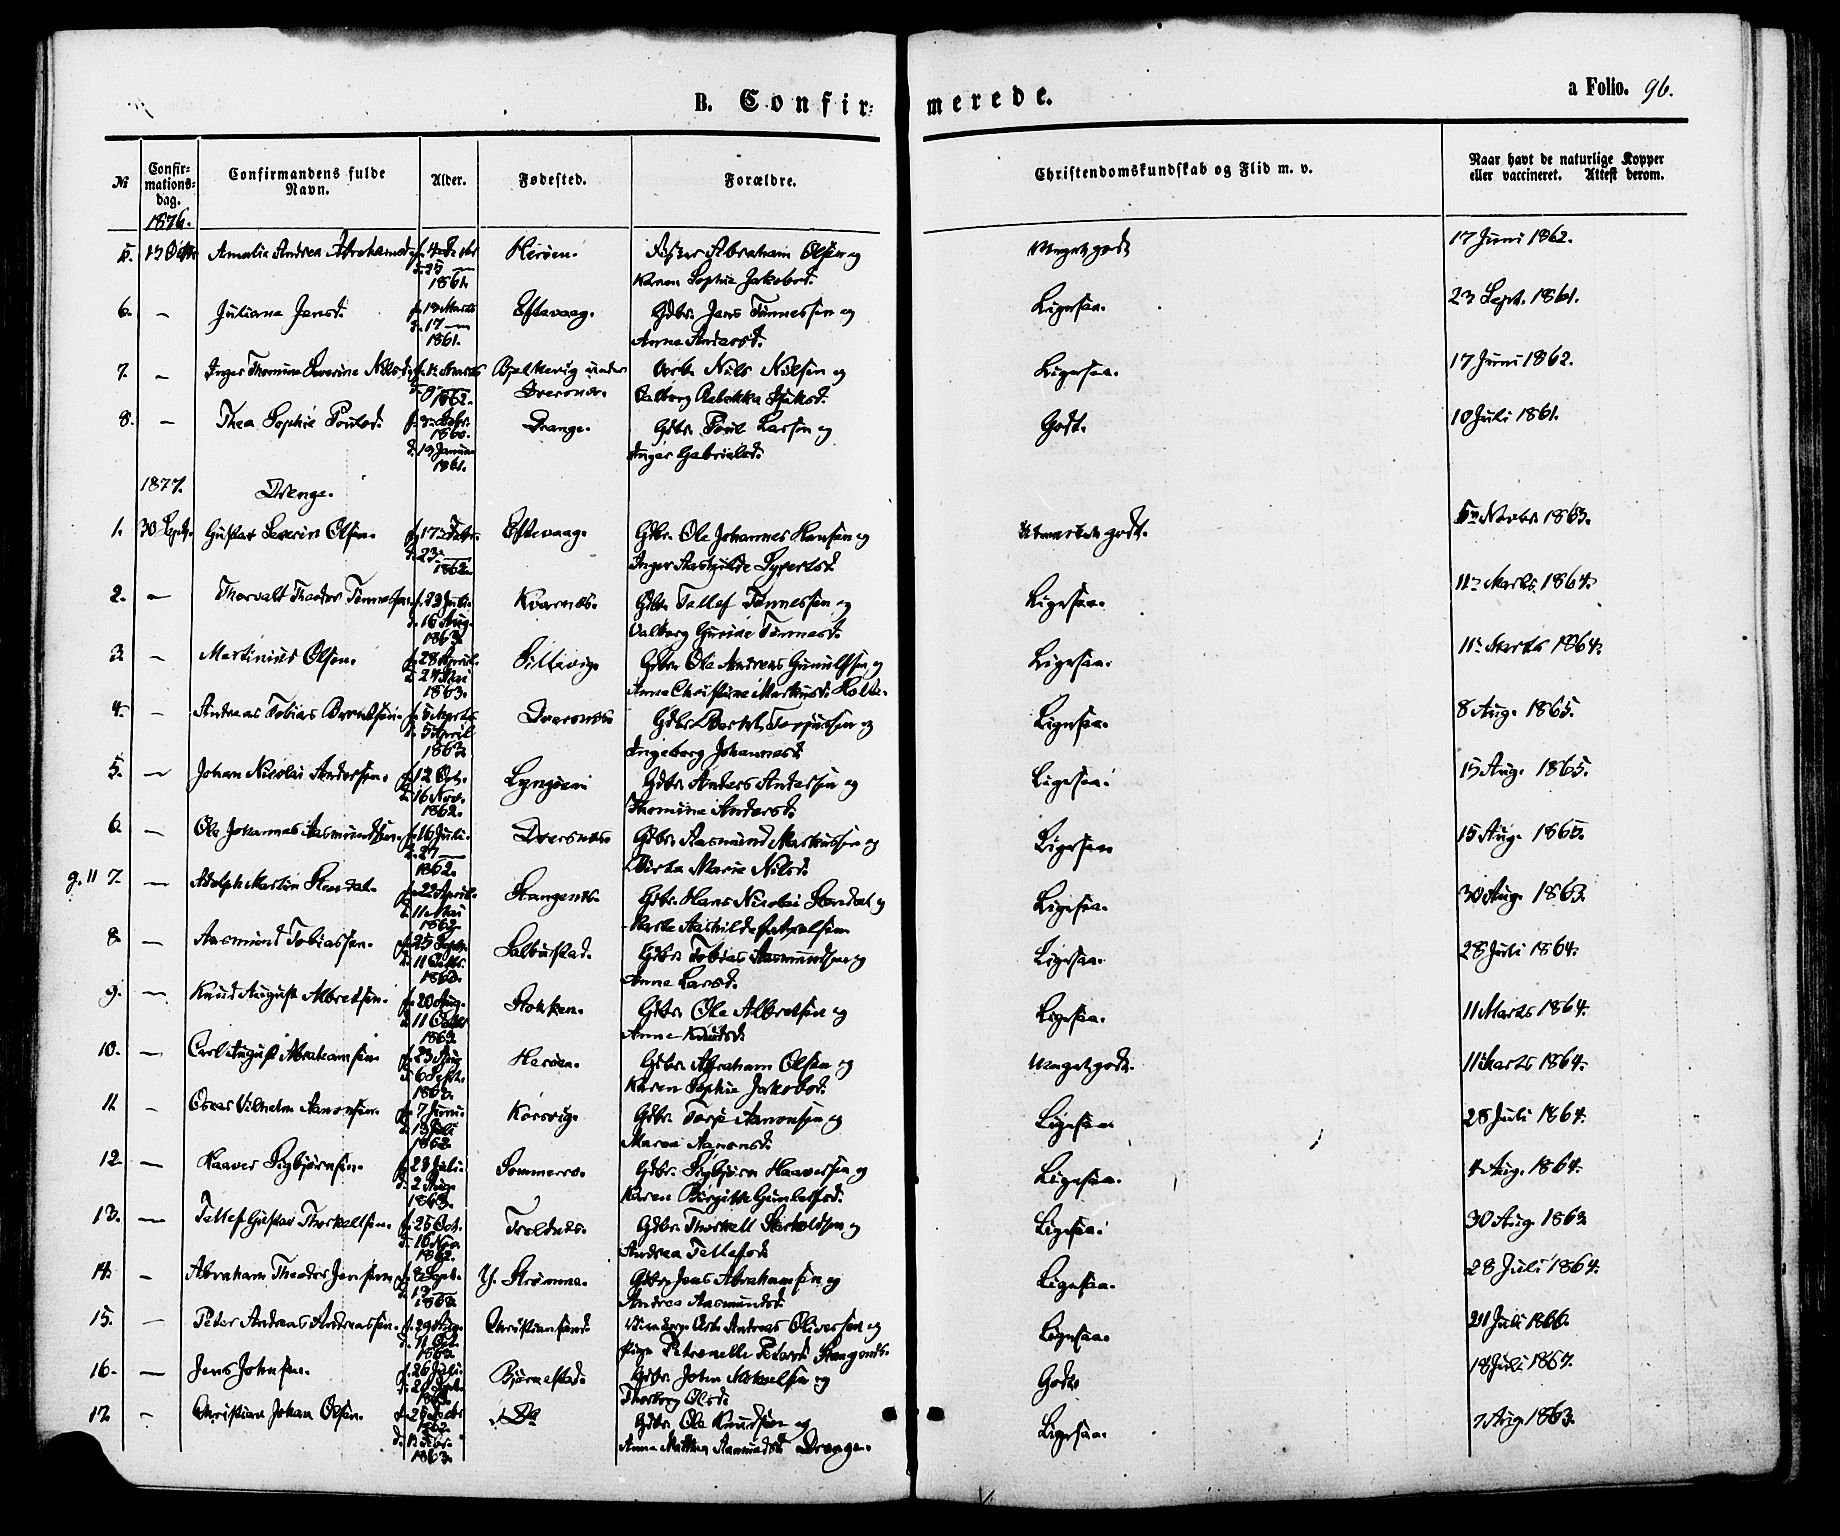 B. Confir-merede.
a Folio. 96.
№ Confirmationsdag. Confirmandens fulde Navn. Alder. Fødested. Forældre. Christendomskundskab og Flid m. v. Naar havt de naturlige Kopper eller vaccineret. Attest derom.
1876.
5. Amalia Andrea Abrahamsd. Herøen. Fisker Abraham Olsen og Meget godt 17 Juni 1862.
1861 Karen Sophie Jakobsd.
6. — Juliane Jensd. f. 13 Marts Eftevaag. Gdbr. Jens Tønnessen og Ligesaa. 23 Sept. 1861.
d. 17 — 1861. Anne Andersd.
7. — Inger Thomine Severine Nilsd. Bjelkevig under Nils Nilsen og Ligesaa. 17 Juni 1862.
1862. Dversnæs. Valborg Rebekka
8. — Thea Sophie Poulsd. Drange. Gdbr. Poul Larsen og Godt. 10 Juli 1861.
1860. d. 19 Januar 1861. Inger Gabrielsd.
1877. Drenge.
1. 30 Sept. Gustav Severin Olsen. f. 17 Febr. Eftevaag. Gdbr. Ole Johannes Hansen og Udmærket godt. Novbr 1863.
d. 23 — 1862. Inger Syvertsd.
2. — Thorvald Theodor Tønnessen f. 23 Juli. Kvarnes. Gdbr. Tellef Tønnessen og Ligesaa. 11 Marts 1864.
d. 16 Aug. 1863. Valborg Gurine Tønnesd.
3. — Martinius Olsen. f. 28 April. Gdbr. Ole Andreas Gunulfsen og Ligesaa. 11 Marts 1864.
d. 24 Mai 1863. Anne Christine Markusd. Holte.
4. — Andreas Tobias Berntsen. f. 5 Marts Dversnæs Gdbr. Terjussen og Ligesaa. 8 Aug. 1865.
d. 5 April 1863. Ingeborg Johannesd.
5. — Johan Nicolai Andersen. f. 12 Oct. Lyngøen Gdbr. Anders Andersen og Ligesaa. 15 Aug. 1865.
d. 16 Nov. 1862. Thomine Andersd.
6. — Ole Johannes Aasmundsen. f. 16 Juli. Dversnæs Gdbr. Aasmund Markussen og Ligesaa 15 Aug. 1865.
d. 27 — 1862. Marie Nilsd.
g. 11 7. — Adolph Martin Stendal. f. 22 April. Stangenes. Gdbr. Hans Nicolai Stendal og Ligesaa. 30 Aug. 1863.
d. 11 Mai 1862. Aashilde
8. — Aasmund Tobiassen. f. 25 Sept. Salbustad. Gdbr. Tobias Aasmundsen og Ligesaa. 28 Juli 1864.
d. 11 Anne Larsd.
9. — Knud August Albretsen. f. 20 Aug. Stokken. Gdbr. Ole Albretsen og Ligesaa. 11 Marts 1864.
d. 11 October 1863. Anne Knudsd.
10. — Carl August Abrahamsen f. 23 Aug. Herøen. Gdbr. Abraham Olsen og Meget godt. 11 Marts 1864.
d. 6 Sept. 1863. Karen Sophie Jakobsd.
11. — Oscar Vilhelm Aanonsen. f. 7 Juni. Korsvig. Gdbr. Terje Aanonsen og Ligesaa 28 Juli 1864.
d. 13 Juli 1862. Maren Aanonsd.
12. — Haaver Sigbjørnsen. f. 23 Juli. Sommerø. Gdbr. Sigbjørn Haaversen og Ligesaa. 4 Aug. 1864.
d. 2 Aug. 1863. Karen Birgitte Gundersd.
13. — Tellef Gustav Thorkellsen. f. 25 Oct. Troldnæs. Gdbr. Thorkell og Ligesaa. 30 Aug. 1863
d. 16 Nov. 1862. Andrea Tellefsd.
14. — Abraham Theodor Jensen f. 8 Sept. Y. Strømme. Gdbr. Jens Abrahamsen og Ligesaa. 28 Juli 1864.
1863. Andrea Aasmundsd.
15. — Peter Andreas Andreassen. f. 29 Aug. Christianssand. Andreas Oliversen og Ligesaa. Juli 1866.
Pige Petronelle Petersd. Stangenes.
16. — Jens Johnsen. f. 26 Juli. Bjørnestad. Gdbr. John og Godt 18 Juli 1867.
Thorborg Olsd.
17 — Christian Johan Olsen. Gdbr. Ole Knudsen og Ligesaa. 7 Aug. 1863.
d. 1 Febr. 1863. Anne Mathea Aasmundsd. Drange.